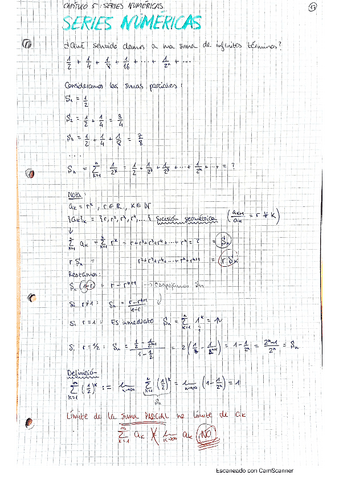 CAPÍTULO 5: SERIES NUMÉRICAS
SERIES NUMÉRICAS
¿Qué sentido damos a una suma de infinitos términos?
1/2 + 1/4 + 1/8 + 1/16 + ... + 1/2^n + ...
Consideramos las sumas parciales:
S₁ = 1/2
S₂ = 1/2 + 1/4 = 3/4
S₃ = 1/2 + 1/4 + 1/8 = 7/8
...
Sₙ = Σ 1/2^k = 1/2 + 1/2² + 1/2³ + ... + 1/2^n = ?
Nota:
aₖ = r^k, r∈ℝ, k∈ℕ
{aₖ}ₖ = {r, r², r³, r⁴, ...} Sucesión geométrica (aₖ₊₁/aₖ = r ∀k)
Σ aₖ = Σ r^k = r + r² + r³ + ... + r^n = ? = Sₙ
r Sₙ = r² + r³ + r⁴ + ... + r^(n+1) = r·Sₙ
Restamos:
Sₙ (1-r) = r - r^(n+1) Sₙ
Si r≠1: Sₙ = (r - r^(n+1))/(1-r)
Si r = 1: Es inmediato Sₙ = Σ 1^k = n
Si r = 1/2: Sₙ = = 2 = 1 - 1/2^n = (2^n - 1)/2^n = Sₙ
Definición
Σ (1/2)^k := lim Σ (1/2)^k = lim (1 - 1/2^n) = 1
Sₙ
Límite de la suma parcial no límite de aₖ
Σ aₖ lim aₖ NO
Escaneado con CamScanner